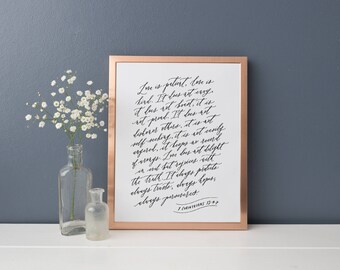 Love is patient, love is
kind. It does not envy,
it does not boast, it is
not proud. It does not
dishonor others, it is not
self-seeking, it is not easily
angered, it keeps no record
of wrongs. Love does not delight
in evil but rejoices with
the truth. It always protects
always trusts, always hopes,
always perseveres.
1 CORINTHIANS 13:4-7